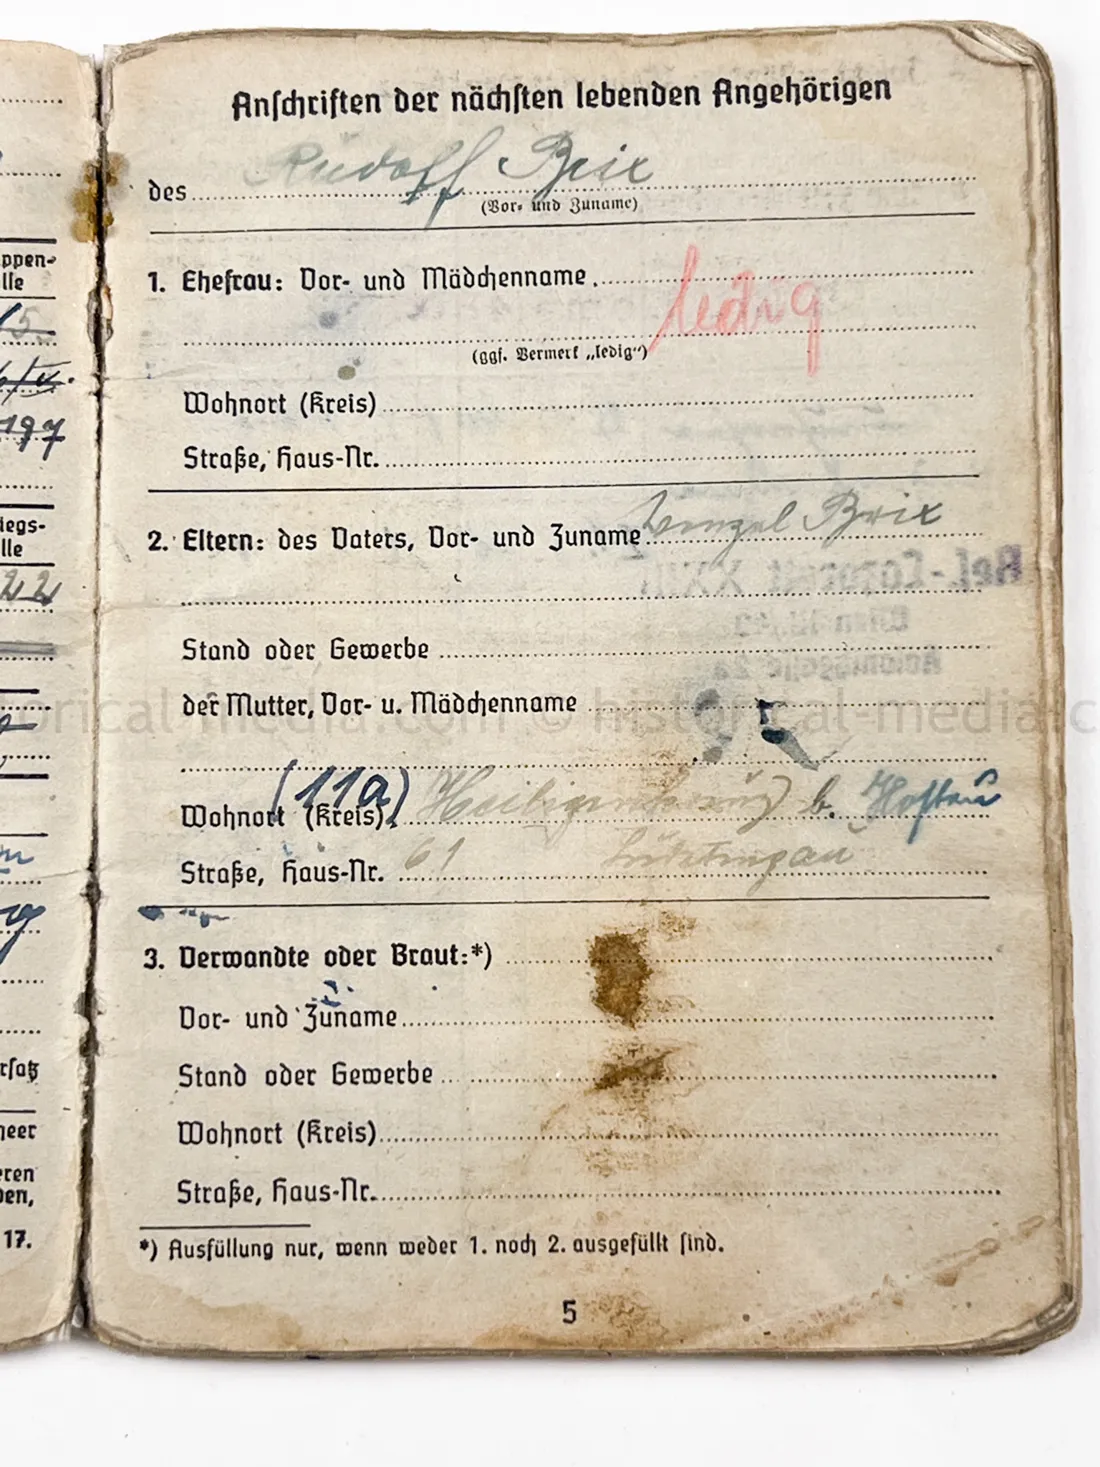 Anschriften der nächsten lebenden Angehörigen
des Rudolf Brix
(Vor- und Zuname)
1. Ehefrau: Vor- und Mädchenname
ledig
(ggf. Vermerk „ledig“)
Wohnort (Kreis)
Straße, Haus-Nr.
2. Eltern: des Vaters, Vor- und Zuname Wenzel Brix
Stand oder Gewerbe
der Mutter, Vor- u. Mädchenname
historical-media.com © historical-media.c
Wohnort (Kreis) (11a) b.
Straße, Haus-Nr. 61
3. Verwandte oder Braut:*)
Vor- und Zuname
Stand oder Gewerbe
Wohnort (Kreis)
Straße, Haus-Nr.
*) Ausfüllung nur, wenn weder 1. noch 2. ausgefüllt sind.
5
ppen-
lle
197
iegs-
lle
22
rsatz
heer
eren
ben,
17.